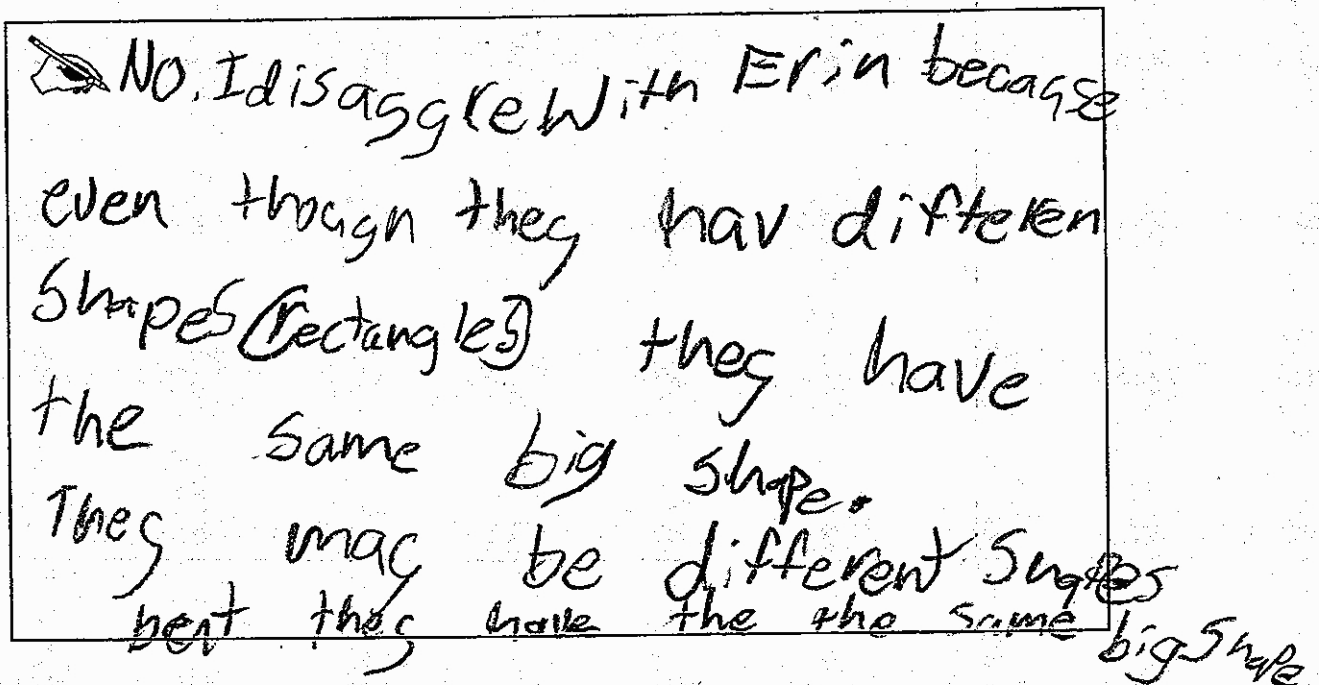 No. I disaggre With Erin because
even though they hav differen
shapes (rectangles) they have
the same big shape.
They may be different shapes
but they have the the same big shape